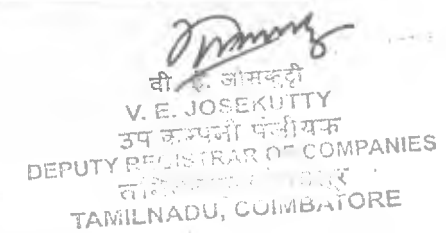 वी . ई. जोसकुट्टी
V. E. JOSEKUTTY
उप कम्पनी पंजीयक
DEPUTY REGISTRAR OF COMPANIES
TAMILNADU, COIMBATORE